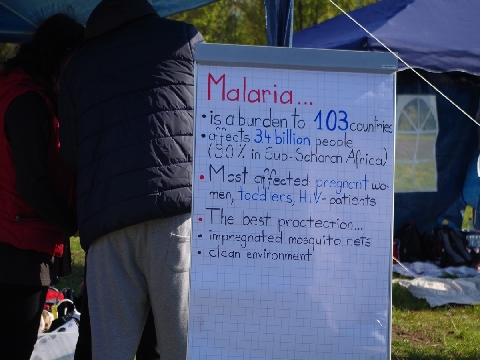 Malaria...
• is a burden to 103 countries
• affects 3.4 billion people
(80% in Sub-Saharan Africa)
• Most affected pregnant wo-
men, toddlers, HIV-patients
• The best proctection...
• impregnated mosquito nets
• clean environment